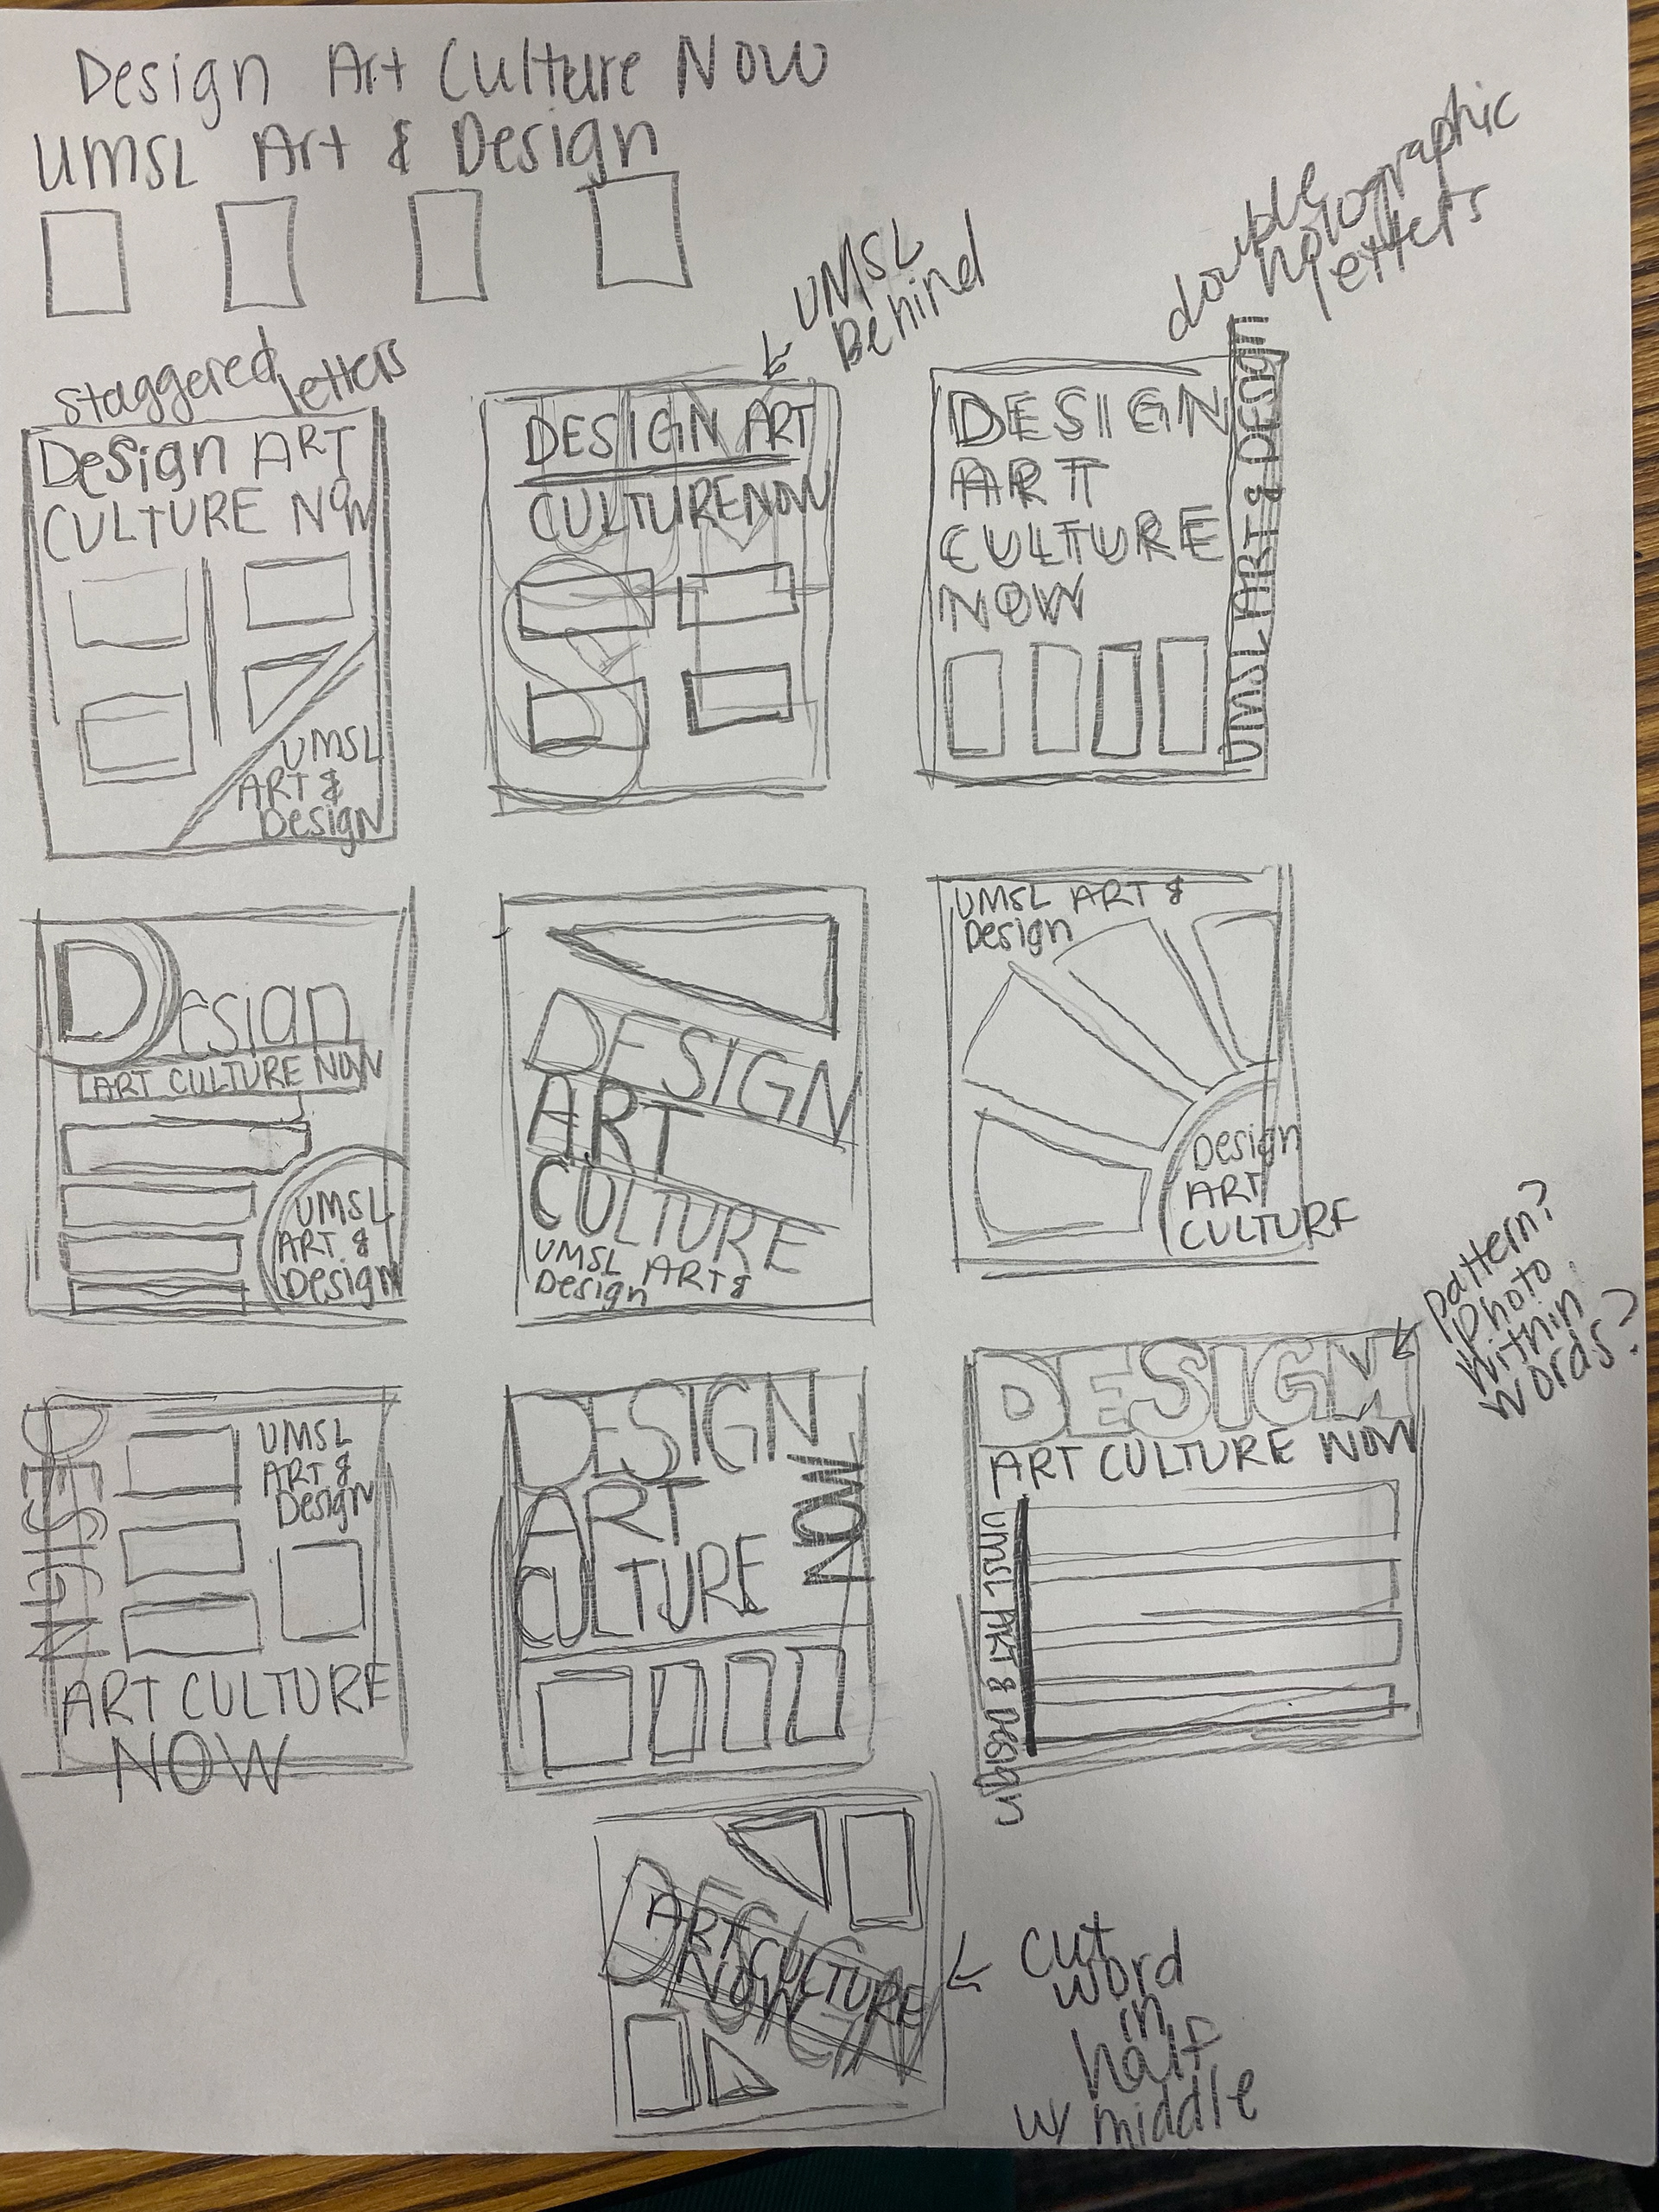 Design Art Culture Now
UMSL Art & Design
staggered letters
Design ART
CULTURE NOW
UMSL
ART &
Design
UMSL
Behind
DESIGN ART
CULTURE NOW
double
holographic
letters
DESIGN
ART
CULTURE
NOW
UMSL ART & DESign
Design
ART CULTURE NOW
UMSL
ART &
Design
DESIGN
ART
CULTURE
UMSL ART &
Design
UMSL ART &
Design
Design
ART
CULTURE
DESIGN
UMSL
ART &
Design
ART CULTURE
NOW
DESIGN
ART
CULTURE
NOW
pattern?
photo
within
words?
DESIGN
ART CULTURE NOW
UMSL ART & Design
DESIGN
ART CULTURE
NOW
cut
word
in
half
w/ middle